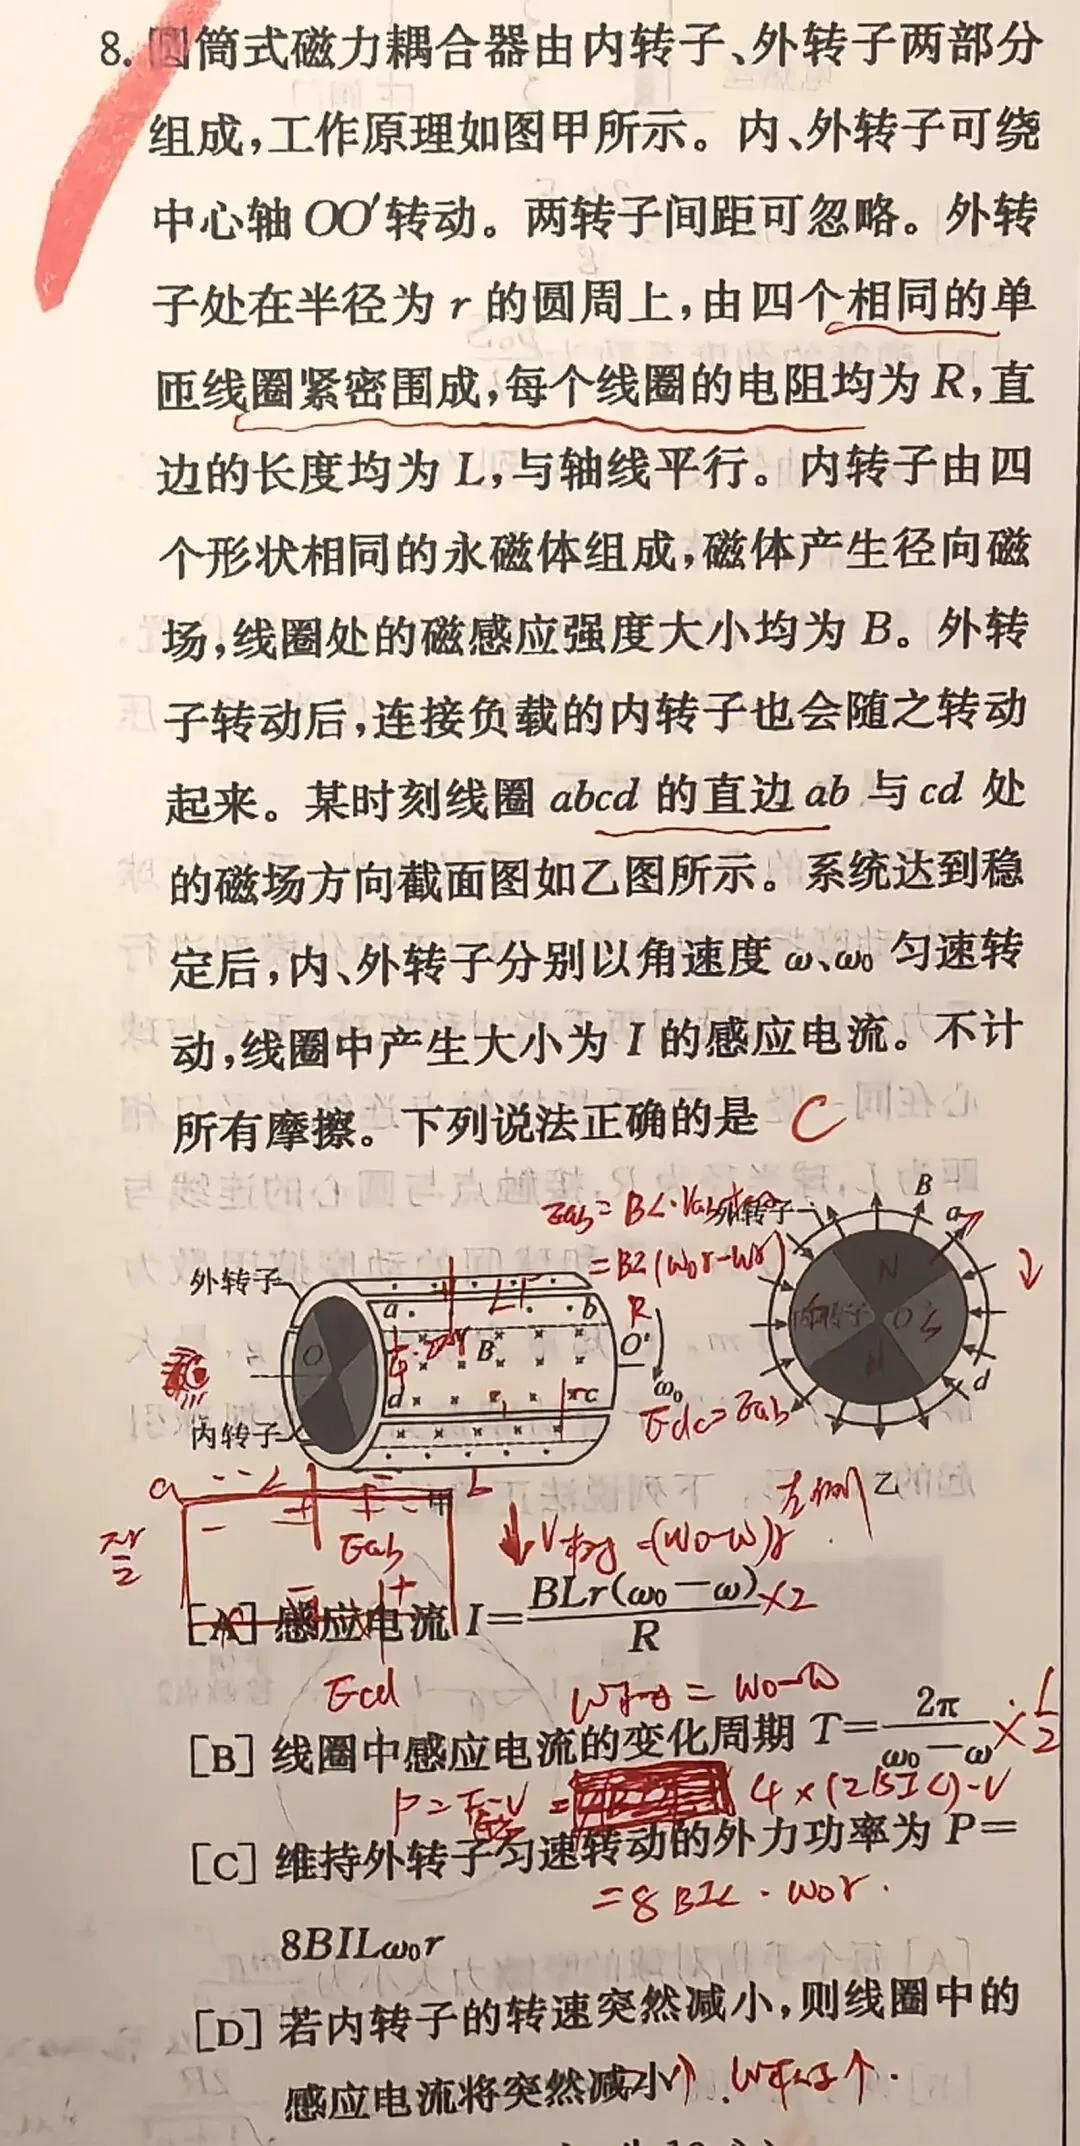 8. 圆筒式磁力耦合器由内转子、外转子两部分
组成,工作原理如图甲所示。内、外转子可绕
中心轴OO′转动。两转子间距可忽略。外转
子处在半径为 r 的圆周上,由四个相同的单
匝线圈紧密围成,每个线圈的电阻均为 R,直
边的长度均为 L,与轴线平行。内转子由四
个形状相同的永磁体组成,磁体产生径向磁
场,线圈处的磁感应强度大小均为 B。外转
子转动后,连接负载的内转子也会随之转动
起来。某时刻线圈 abcd 的直边 ab 与 cd 处
的磁场方向截面图如乙图所示。系统达到稳
定后,内、外转子分别以角速度 ω、ω₀ 匀速转
动,线圈中产生大小为 I 的感应电流。不计
所有摩擦。下列说法正确的是 C
Eab = BL·Vab
= BL(ω₀r-ωr)
外转子
B
a
外转子
a
b
B
L
R
O
O′
ω₀
d
c
内转子
N
O
N
d
Edc = Eab
甲
左侧
乙
a
L
L
πr/2
Eab
V相对=(ω₀-ω)r
[A] 感应电流 I=BLr(ω₀-ω)/R ×2
Ecd
ω相对 = ω₀-ω
[B] 线圈中感应电流的变化周期 T=2π/(ω₀-ω) ×1/2
4×(2BIL)·V
[C] 维持外转子匀速转动的外力功率为 P=
=8BIL·ω₀r.
8BILω₀r
[D] 若内转子的转速突然减小,则线圈中的
感应电流将突然减小 ω相对↑.